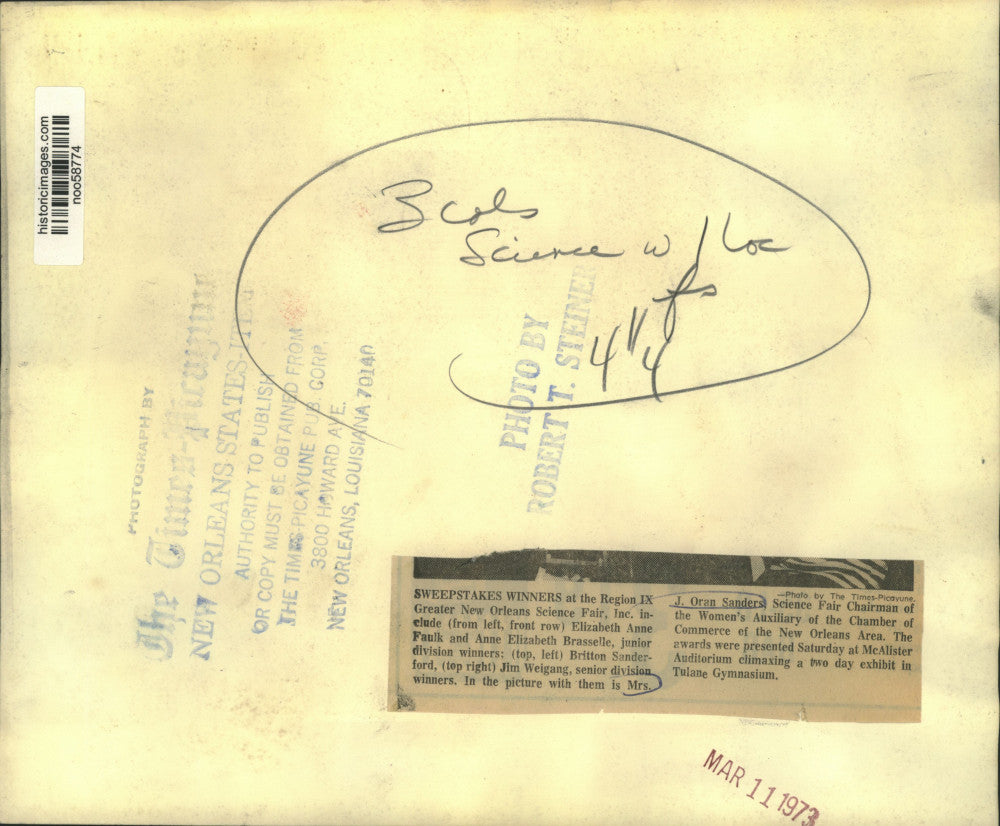 historicimages.com
noo58774
3 cols
Science w/loc
fs
4 1/4
PHOTOGRAPH BY
The Times-Picayune
NEW ORLEANS STATES-ITEM
AUTHORITY TO PUBLISH
OR COPY MUST BE OBTAINED FROM
THE TIMES-PICAYUNE PUB. CORP.
3800 HOWARD AVE.
NEW ORLEANS, LOUISIANA 70140
PHOTO BY
ROBERT T. STEINER
SWEEPSTAKES WINNERS at the Region IX
Greater New Orleans Science Fair, Inc. in-
clude (from left, front row) Elizabeth Anne
Faulk and Anne Elizabeth Brasselle, junior
division winners; (top, left) Britton Sander-
ford, (top right) Jim Weigang, senior division
winners. In the picture with them is Mrs.
—Photo by The Times-Picayune.
J. Oran Sanders, Science Fair Chairman of
the Women's Auxiliary of the Chamber of
Commerce of the New Orleans Area. The
awards were presented Saturday at McAlister
Auditorium climaxing a two day exhibit in
Tulane Gymnasium.
MAR 11 1973